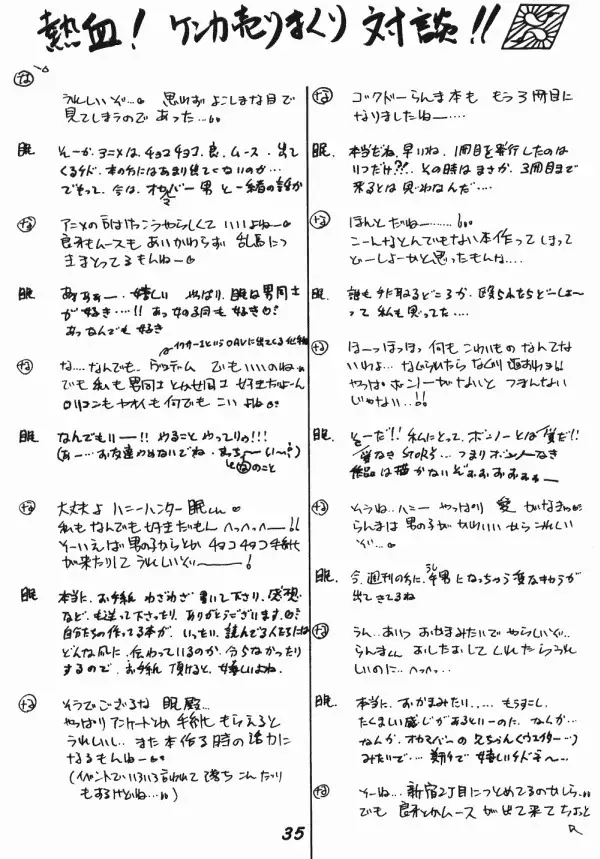 熱血！ ケンカ売りまくり 対談!!
な ゴクドーらんま本も もう3冊目に
なりましたねー……
眠. 本当だね. 早いね. 1冊目を発行したのは
いつだけ?!. その時は まさか. 3冊目まで
来るとは 思わなんだ……
な ほんとだね………!
こーんなとんでもない本作ってしまって
どーしよーかと思ったもんな……
眠. 誰も 手取るどころか. 殴られたらどーしよ〜
って 私も思ってた……
な ほーっほっほっ 何も こわいもの なんてない
いわよ… なぐられたら なぐり
やっぱ ボンノーがないと つまんない
じゃない..!!
眠. そーだ!! 私にとって. ボンノーとは 愛だ!!
愛なき STORY… つまりボンノーなき
作品は 描かないぞぉぉぉぉぉぉー
な そうね.. ハニー やっぱり 愛 がなきゃっ
らんまは 男の子が かわいいから うれしい
ぞ…
眠. 今. 週刊の方に. 牛男になっちゃう 変なキャラが
出てきてるね
な うん… あいつ おかまみたいで やらしいぞ…
らんまくん おしたおして くれたら うれ
しいのに… へへっ…
眠. 本当に. おかまみたい…… もう少し.
たくましい感じが あるといーのに. なんか…
なんか. オカマバーの 兄ちゃん
みたいで… 嬉しい〜…
な そーね… 新宿2丁目につとめてるのかしら…
でも 良牙とかムースが出て来てちょっと
な うれしいぞ… 思わず よこしまな目で
見てしまうので あった……
眠 そーか. アニメは. チョコチョコ. 良. ムース. 出て
くるけど. 本の方にはあまり出てこないのか…
でもって. 今は. オカマバー 男 と一緒の話か
な アニメの方はけっこうやらしくて いいよねー
良牙もムースも あいかわらず 乱馬につ
きまとってるもんねー
眠 あぁぁー. 嬉しい やっぱり. 眠は男同士
が好き…!! あっ 女の子同士も 好きかも?
あっ なんでも 好き
な な….なんでも. でもいいのね
でも 私も 男同士 とか女同士 好きだよーん
ロリコンも ヤオイも 何でも こいよね
眠 なんでもいー!! やること やってりゃ!!!
のこと
な 大丈夫よ ハニーハンター 眠くん
私もなんでも 好きだもん へっへっへー!!
そーいえば 男の子からとか チョコチョコ手紙
が来たりして うれしいぞー!
眠 本当に. お手紙 わざわざ 書いて下さり. 感想
なども送って下さったり. ありがとうございます.
自分たちの作ってる本が. いったい. 読んでる人たちには
どんな風に. 伝わっているのか. 分らなかったり
するので. お手紙 頂けると. 嬉しいよね.
な そうでござるな 眠殿…
やっぱり アンケートとか 手紙 もらえると
うれしいし. また本作る時の 活力に
なるもんねー
(イベントでいろいろ言われて 落ちこんだり
もするけどね…)
35